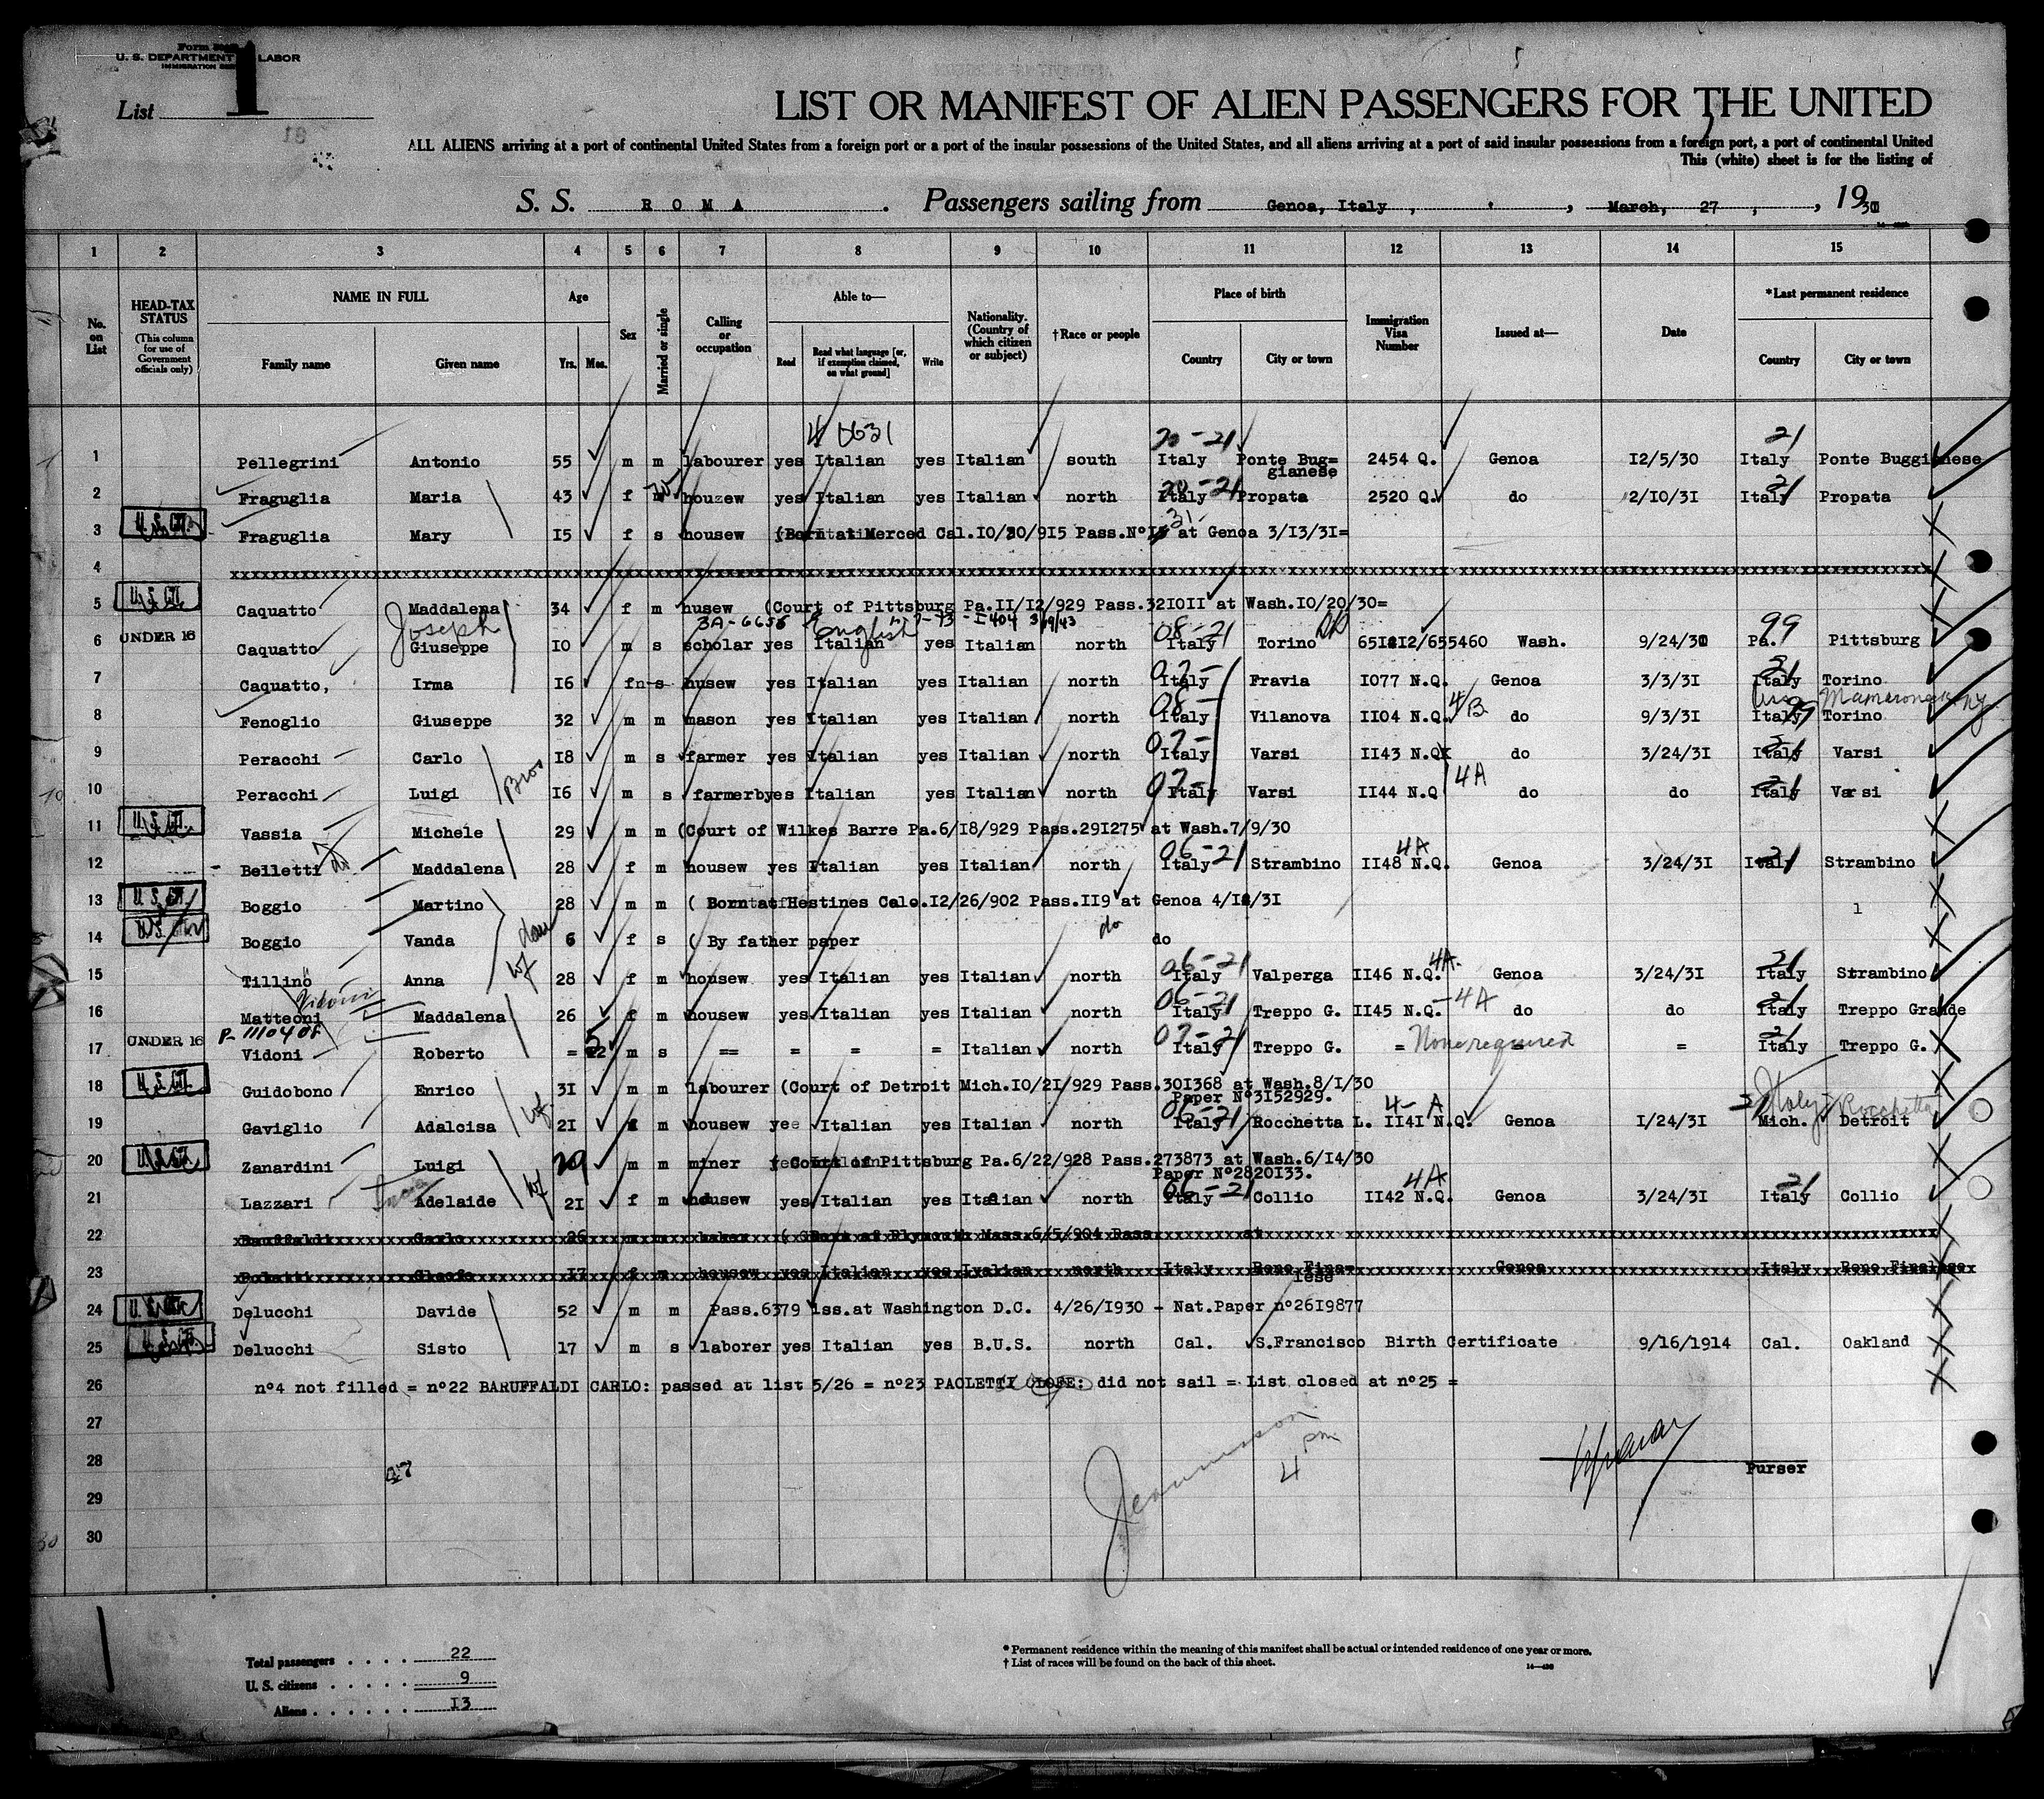 Form
U. S. DEPARTMENT LABOR
List 1
LIST OR MANIFEST OF ALIEN PASSENGERS FOR THE UNITED
ALL ALIENS arriving at a port of continental United States from a foreign port or a port of the insular possessions of the United States, and all aliens arriving at a port of said insular possessions from a foreign port, a port of continental United
This (white) sheet is for the listing of
S. S. ROMA . Passengers sailing from Genoa, Italy , March, 27 , 19
1 2 3 4 5 6 7 8 9 10 11 12 13 14 15
No. on List
HEAD-TAX STATUS (This column for use of Government officials only)
NAME IN FULL Family name Given name
Age Yrs. Mos.
Sex
Married or single
Calling or occupation
Able to— Read Read what language [or, if exemption claimed, on what ground] Write
Nationality. (Country of which citizen or subject)
†Race or people
Place of birth Country City or town
Immigration Visa Number
Issued at—
Date
*Last permanent residence Country City or town
20-21 21
1 Pellegrini Antonio 55 m m labourer yes Italian yes Italian south Italy Ponte Bug= gianese 2454 Q. Genoa I2/5/30 Italy Ponte Buggianese
2 Fraguglia Maria 43 f housew yes Italian yes Italian north Italy 20-21 Propata 2520 Q. do 2/I0/3I Italy 21 Propata
3 Fraguglia Mary I5 f s housew (Born at Merced Cal.I0/30/9I5 Pass.N° 31 at Genoa 3/I3/3I=
4 xxxxxxxx
5 Caquatto Maddalena 34 f m husew (Court of Pittsburg Pa.II/I2/929 Pass.32I0II at Wash.I0/20/30=
Joseph English 08-21 99
6 UNDER 16 Caquatto Giuseppe I0 m s scholar yes Italian yes Italian north Italy Torino /655460 Wash. 9/24/30 Pa. Pittsburg
7 Caquatto, Irma I6 f s husew yes Italian yes Italian north Italy Fravia I077 N.Q. Genoa 3/3/3I Italy Torino
Mamaroneck NY
8 Fenoglio Giuseppe 32 m m mason yes Italian yes Italian north Italy 08- Vilanova II04 N.Q. 4B do 9/3/3I Italy 99 Torino
9 Peracchi Carlo I8 m s farmer yes Italian yes Italian north Italy 07- Varsi II43 N.Q. do 3/24/3I Italy Varsi
10 Peracchi Luigi Bros I6 m s farmer yes Italian yes Italian north Italy 07- Varsi II44 N.Q 4A do do Italy Varsi
11 Vassia Michele 29 m m (Court of Wilkes Barre Pa.6/I8/929 Pass.29I275 at Wash.7/9/30
12 Belletti Maddalena 28 f m housew yes Italian yes Italian north Italy 06-21 Strambino II48 N.Q. 4A Genoa 3/24/3I Italy 21 Strambino
13 Boggio Martino 28 m m ( Born at Hestines Calo.I2/26/902 Pass.II9 at Genoa
14 Boggio Vanda dau 6 f s ( By father paper do do
15 Tillino Anna wf 28 f m housew yes Italian yes Italian north Italy 06-21 Valperga II46 N.Q. 4A Genoa 3/24/3I Italy 21 Strambino
Vidoni
16 Matteoni Maddalena 26 f m housew yes Italian yes Italian north Italy 06-21 Treppo G. II45 N.Q. -4A do do Italy 21 Treppo Grande
P-1110408
17 UNDER 16 Vidoni Roberto = m s == = = = Italian north Italy 07-21 Treppo G. = None required = Italy 21 Treppo G.
18 Guidobono Enrico 3I m m labourer (Court of Detroit Mich.I0/2I/929 Pass.30I368 at Wash.8/I/30
Paper N°3I52929. Italy Rocchetta
19 Gaviglio Adalcisa wf 2I m housew yes Italian yes Italian north Italy 06-21 Rocchetta L. II4I N.Q. 4-A Genoa I/24/3I Mich. Detroit
20 Zanardini Luigi 29 m m miner (Court of Pittsburg Pa.6/22/928 Pass.273873 at Wash.6/I4/30
Paper N°2820I33.
21 Lazzari Adelaide wf 2I f m housew yes Italian yes Italian north Italy 06-21 Collio II42 N.Q. 4A Genoa 3/24/3I Italy 21 Collio
22 Baruffaldi Carlo 26 m m baker (Born at Plymouth Mass.6/5/904 Pass. at
23 Poletti Cleofe I7 f m housew yes Italian yes Italian north Italy Reno Fina= lese Genoa Italy Reno Finalese
24 Delucchi Davide 52 m m Pass.6379 iss.at Washington D.C. 4/26/I930 - Nat.Paper n°26I9877
25 Delucchi Sisto 17 m s laborer yes Italian yes B.U.S. north Cal. S.Francisco Birth Certificate 9/16/1914 Cal. Oakland
26 n°4 not filled = n°22 BARUFFALDI CARLO: passed at list 5/26 = n°23 PAOLETTI CLOFE: did not sail = List closed at n°25 =
27
28 47 4 pm Purser
29
30
Total passengers . . . . 22
U. S. citizens . . . . . 9
Aliens . . . . . . I3
* Permanent residence within the meaning of this manifest shall be actual or intended residence of one year or more.
† List of races will be found on the back of this sheet.